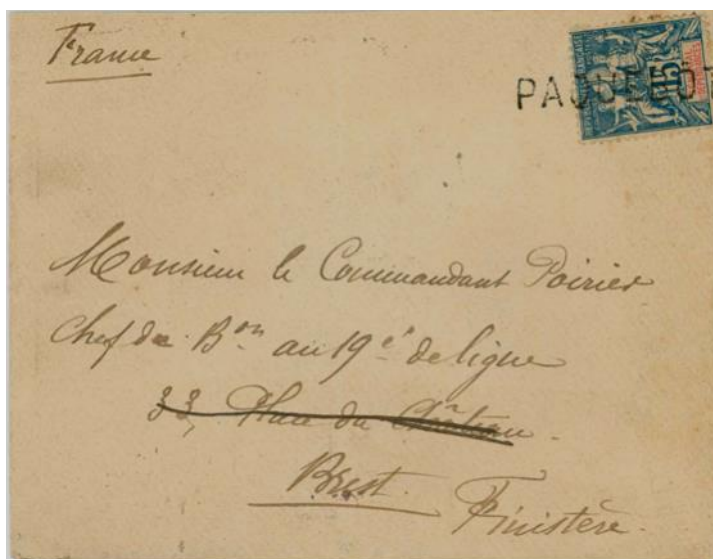 France
PAQUEBOT
15
Monsieur le Commandant Poirier
Chef de Bon au 19e de ligne
33, Place du Château
Brest
Finistère